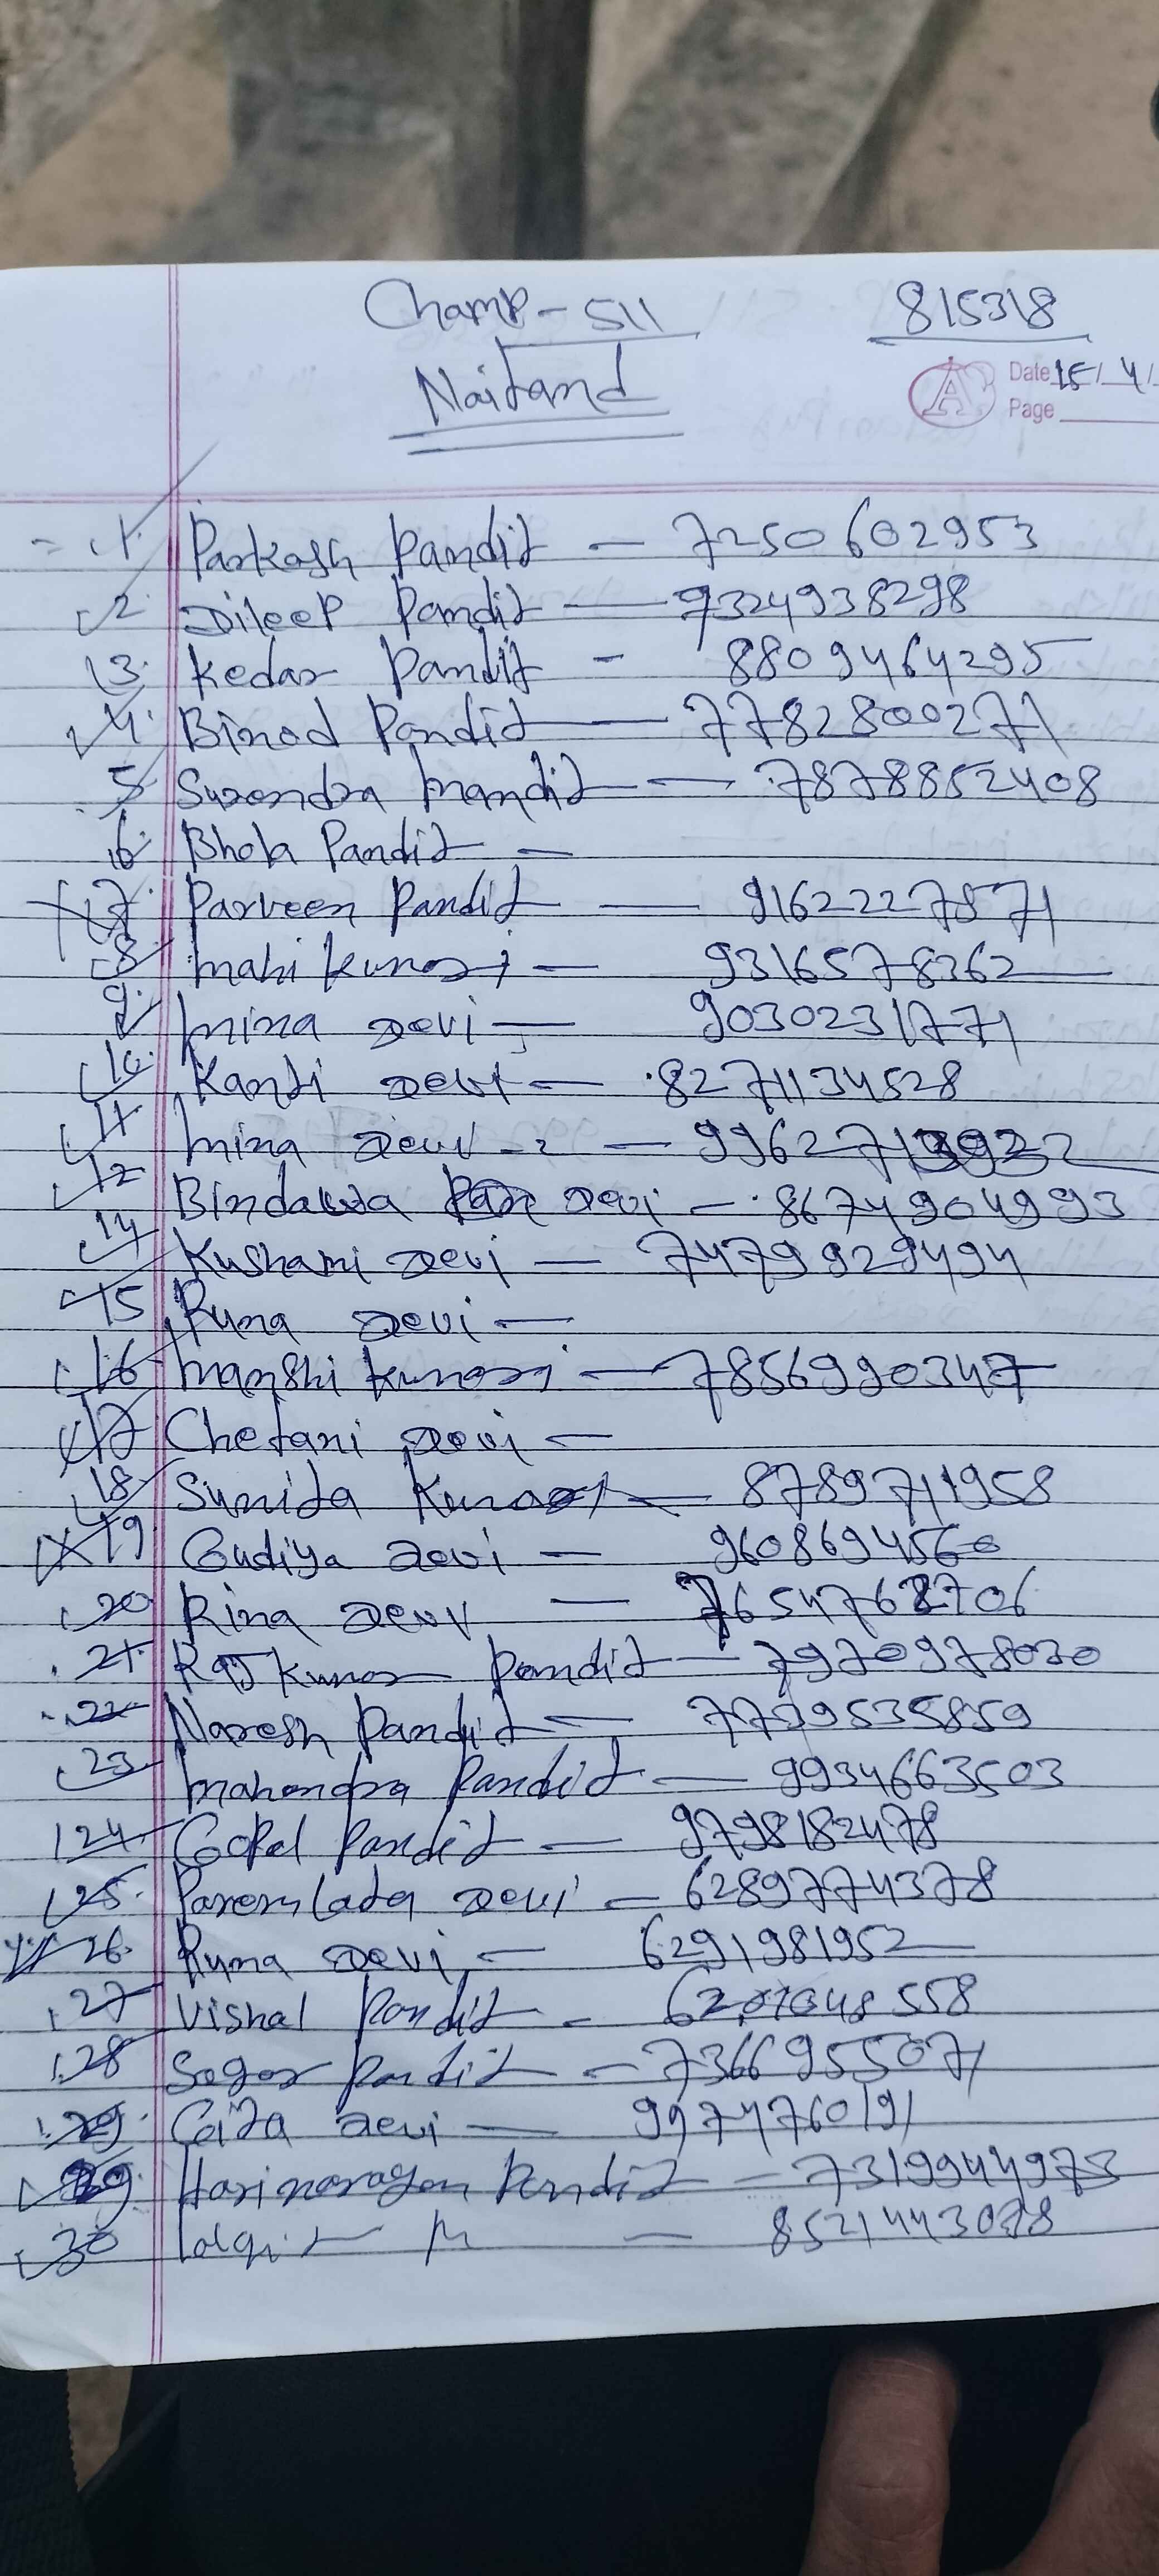 Champ - S11 815318
Naitand Date 15/4/
Page
1. Parkash Pandit — 7250602953
2. Dileep Pandit — 9324938298
3. Kedar Pandit - 8809464295
4. Binod Pandit — 7782800271
5 Surendra Pandit — 7878852408
6. Bhola Pandit —
7. Parveen Pandit — 9162227871
8 Mahi Kumari — 9316578362
9. Mina Devi — 9030231771
10. Kanti Devi — 8271134528
11. Mina Devi - 2 — 9962713922
12 Devi — 8674904993
14 Kushami Devi — 7479929494
15 Runa Devi —
16 Manshi Kumari — 7856990347
17 Chetani Devi —
18 Sunita Kumari — 8789711958
19 Gudiya Devi — 9608694560
20 Rina Devi —
21. Rajkumar Pandit — 7970978030
22 Naresh Pandit — 7739535859
23 Mahendra Pandit — 9934663503
24. Gopal Pandit — 9798182478
25. Paremlata Devi — 6289774378
26. Runa Devi — 6291981952
27 Vishal Pandit -
28 Sagar Pandit — 7366955071
29. Gita Devi — 9974760191
29. Harinarayan Pandit — 7319944973
30 — 8521443078